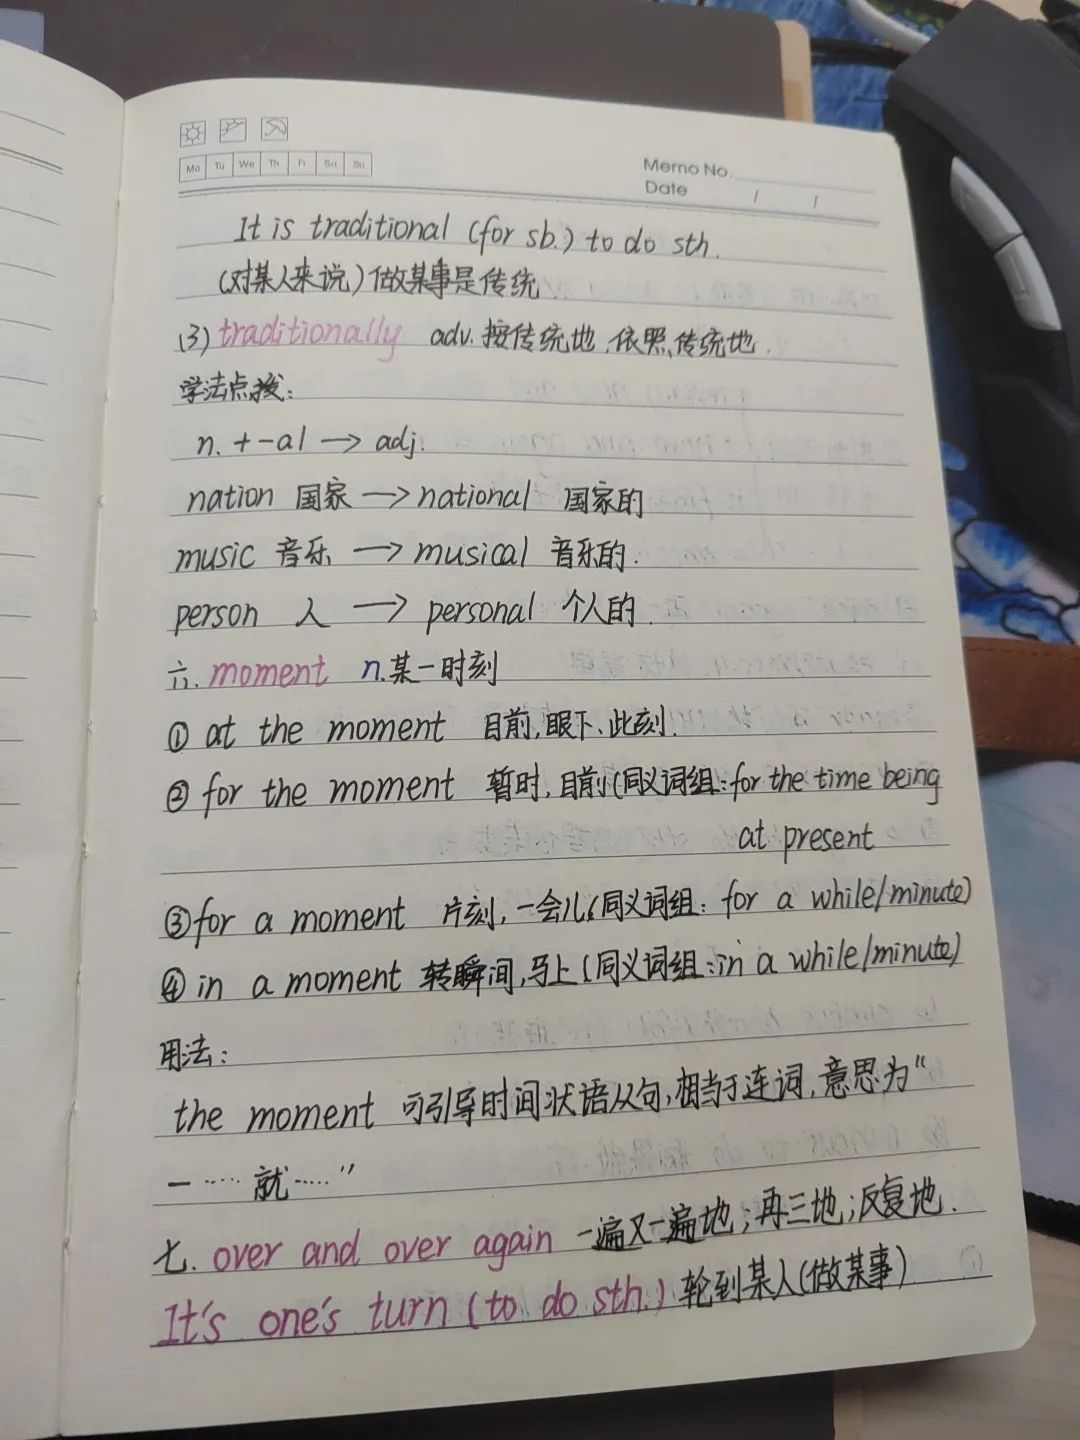 Mo Tu We Th Fr Sa Su
Memo No.
Date / /
It is traditional (for sb.) to do sth.
(对某人来说)做某事是传统
(3) traditionally adv. 按传统地,依照传统地.
学法点拨:
n. + -al → adj.
nation 国家 → national 国家的
music 音乐 → musical 音乐的.
person 人 → personal 个人的.
六. moment n.某一时刻
① at the moment 目前,眼下、此刻.
② for the moment 暂时,目前(同义词组:for the time being
at present
③for a moment 片刻,一会儿(同义词组: for a while/minute)
④ in a moment 转瞬间,马上(同义词组:in a while/minute)
用法:
the moment 可引导时间状语从句,相当于连词,意思为“
一……就……”
七. over and over again 一遍又一遍地;再三地;反复地.
It's one's turn (to do sth.) 轮到某人(做某事)